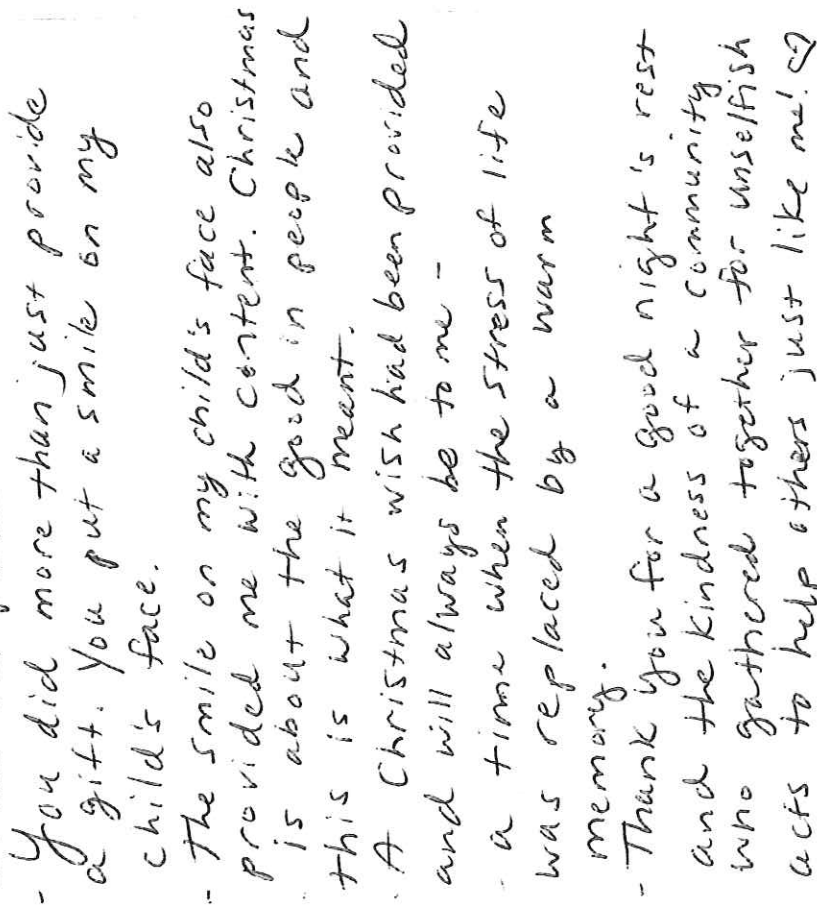 - You did more than just provide
a gift. You put a smile on my
child's face.
- The smile on my child's face also
provided me with content. Christmas
is about the good in people and
this is what it meant.
- A Christmas wish had been provided
and will always be to me -
- a time when the stress of life
was replaced by a warm
memory.
- Thank you for a good night's rest
and the kindness of a community
who gathered together for unselfish
acts to help others just like me! ♡